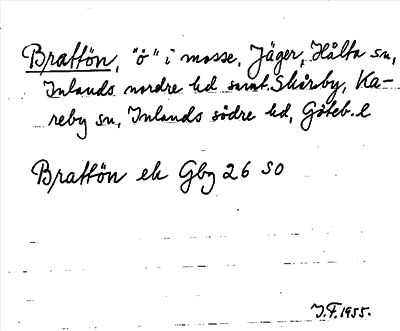 Brattön, "ö" i mosse, Jäger, Hålta sn,
Inlands nordre hd samt Skårby, Ka-
reby sn, Inlands södre hd, Göteb. l
Brattön ek Gbg 26 SO
I.F. 1955.